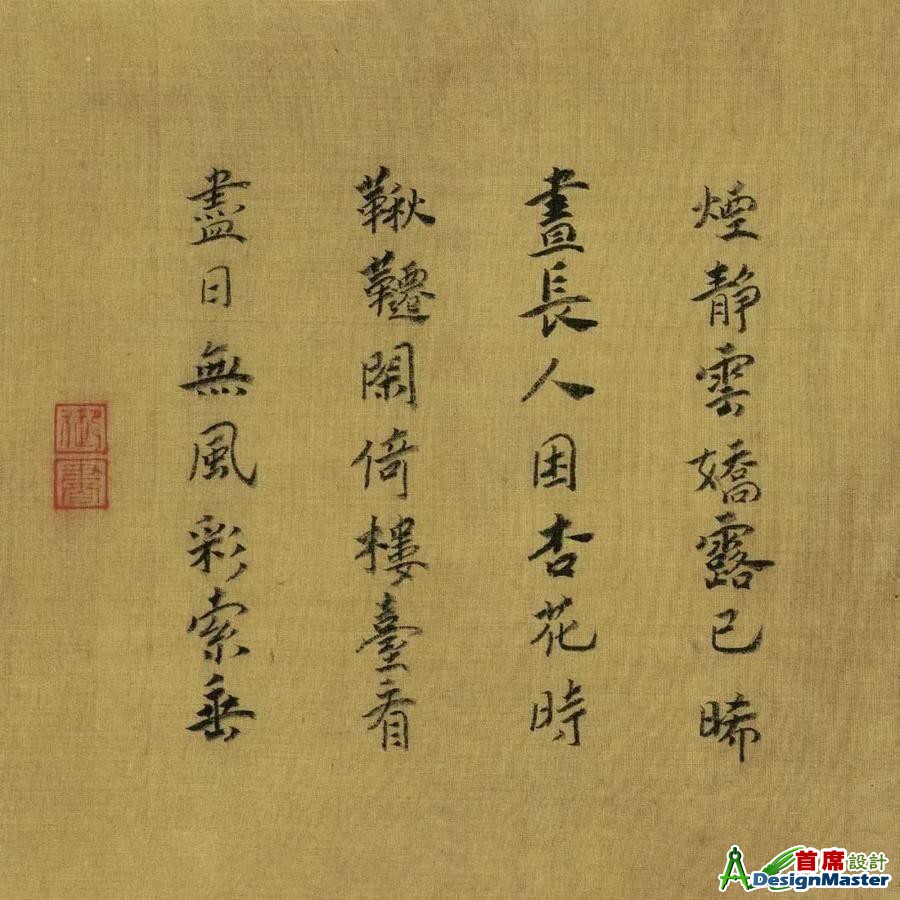 煙靜雲嬌露已晞
晝長人困杏花時
鞦韆閑倚樓臺看
盡日無風彩索垂
御書
首席設計
DesignMaster